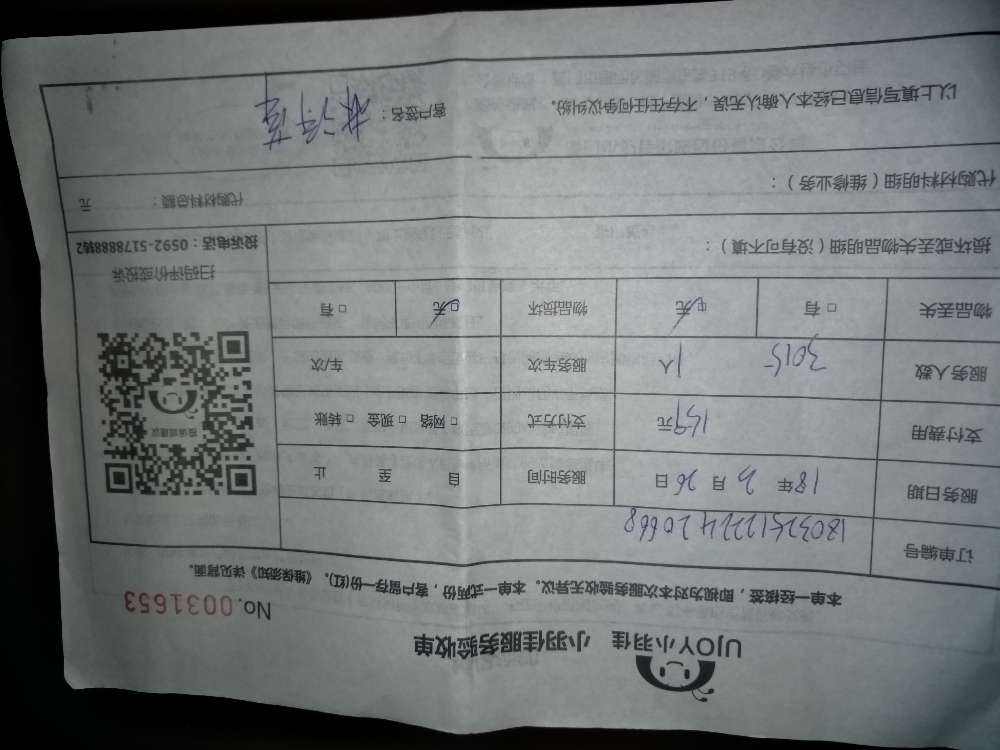 UJOY小羽佳 小羽佳服务验收单
No.0031653
本单一经核签，即视为对本次服务验收无异议。本单一式两份，客户留存一份(红)。《维保须知》详见背面。
订单编号 180325122242068
服务日期 18年 3月 26日 服务时间 自 至 止
支付费用 159元 支付方式 □网络 □现金 □转账
服务人数 3015 1人 服务车次 车/次
物品丢失 □有 □无 物品损坏 □无 □有
损坏或丢失物品明细（没有可不填）：
投诉或建议
扫码评价或投诉
投诉电话：0592-5178888转2
代购材料明细（维修业务）：
代购材料总额： 元
以上填写信息已经本人确认无误，不存在任何争议纠纷。 客户签名：